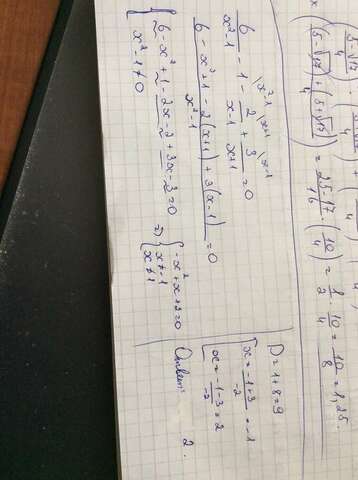 (5-√17 / 4)(5+√17 / 4) = 25-17 / 16 · (10 / 4) = 1 / 2 · 10 / 4 = 10 / 8 = 1,25.
6 / x²-1 - 1 \x²-1 - 2 / x-1 \x+1 + 3 / x+1 \x-1 = 0
6 - x²+1 - 2(x+1) + 3(x-1) / x²-1 = 0
{ 6 - x² + 1 - 2x - 2 + 3x - 3 = 0
x² - 1 ≠ 0
=> { -x² + x + 2 = 0
x ≠ -1
x ≠ 1
D = 1 + 8 = 9
[ x = -1+3 / -2 = -1
x = -1-3 / -2 = 2
Ответ: 2.